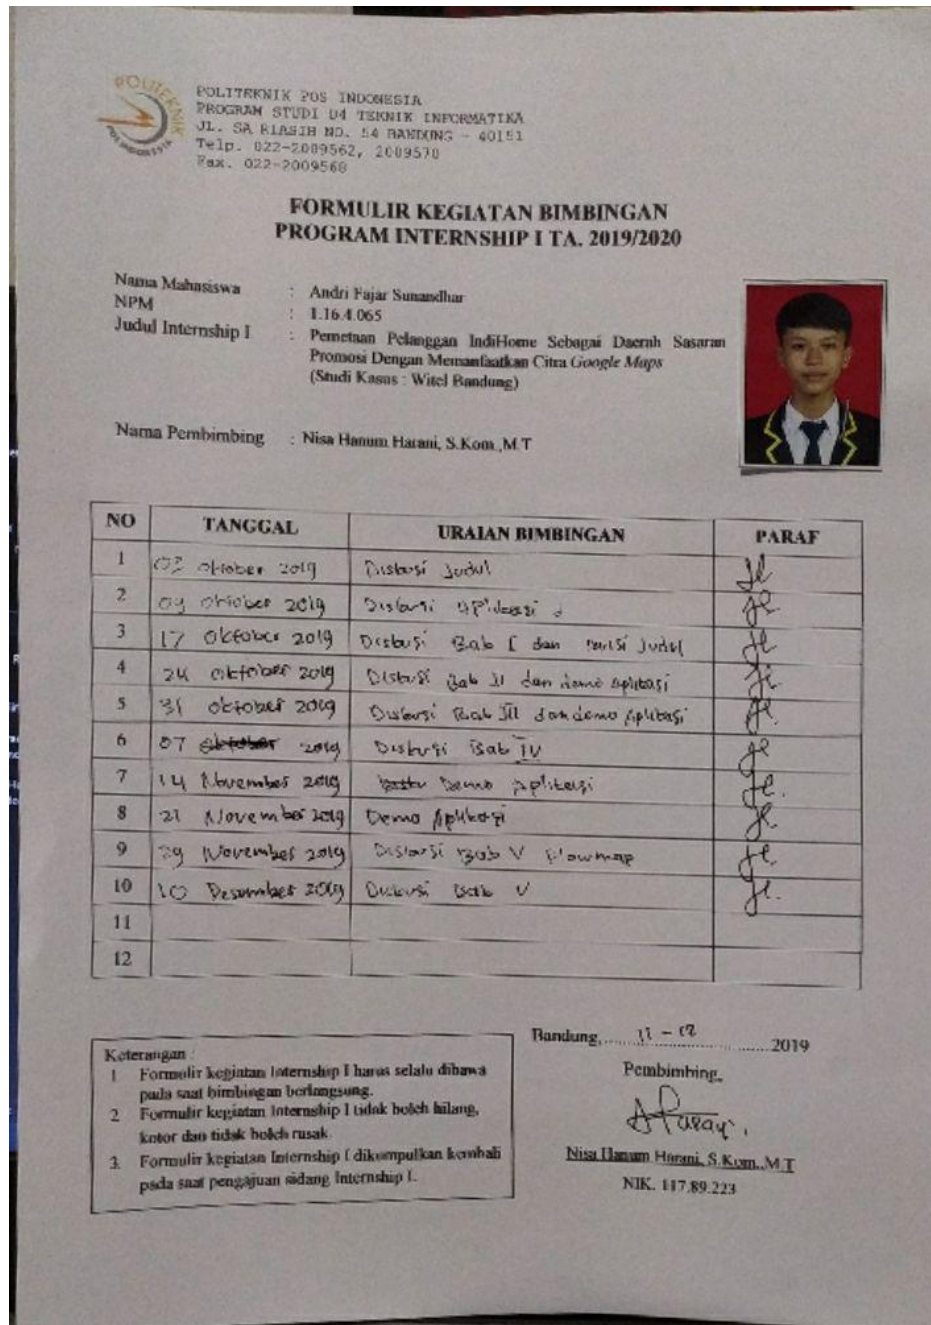 POLITEKNIK POS INDONESIA
POLITEKNIK POS INDONESIA
PROGRAM STUDI D4 TEKNIK INFORMATIKA
JL. SARIASIH NO. 54 BANDUNG - 40151
Telp. 022-2009562, 2009570
Fax. 022-2009568
FORMULIR KEGIATAN BIMBINGAN
PROGRAM INTERNSHIP I TA. 2019/2020
Nama Mahasiswa : Andri Fajar Sunandhar
NPM : 1.16.4.065
Judul Internship I : Pemetaan Pelanggan IndiHome Sebagai Daerah Sasaran
Promosi Dengan Memanfaatkan Citra Google Maps
(Studi Kasus : Witel Bandung)
Nama Pembimbing : Nisa Hanum Harani, S.Kom.,M.T
NO TANGGAL URAIAN BIMBINGAN PARAF
1 03 Oktober 2019 Diskusi Judul
2 09 Oktober 2019 Diskusi aplikasi
3 17 Oktober 2019 Diskusi Bab I dan revisi Judul
4 24 Oktober 2019 Diskusi Bab II dan demo aplikasi
5 31 Oktober 2019 Diskusi Bab III dan demo Aplikasi
6 07 2019 Diskusi Bab IV
7 14 November 2019 Demo Aplikasi
8 21 November 2019 Demo Aplikasi
9 29 November 2019 Diskusi Bab V Flowmap
10 10 Desember 2019 Diskusi Bab V
11
12
Keterangan :
1 Formulir kegiatan Internship I harus selalu dibawa
pada saat bimbingan berlangsung.
2 Formulir kegiatan Internship I tidak boleh hilang,
kotor dan tidak boleh rusak.
3. Formulir kegiatan Internship I dikumpulkan kembali
pada saat pengajuan sidang Internship I.
Bandung, 11 - 12 2019
Pembimbing,
Nisa Hanum Harani, S.Kom.,M.T
NIK. 117.89.223